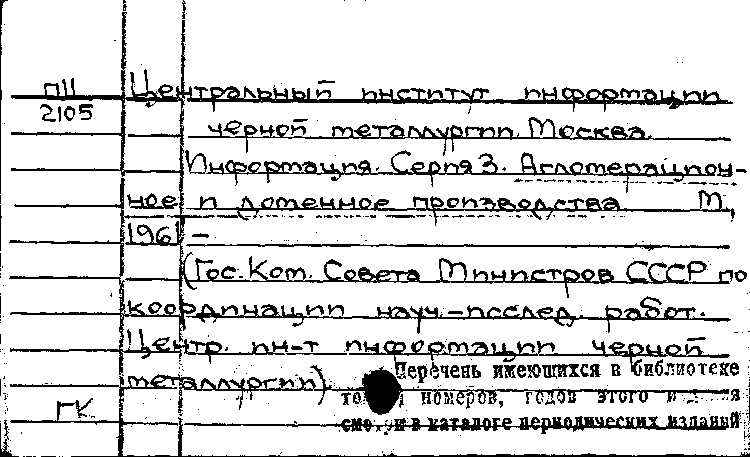 П11
2105
Центральный институт информации
черной металлургии. Москва.
Информация. Серия 3. Агломерацион-
ное и доменное производства. М.,
1961 –
(Гос. Ком. Совета Министров СССР по
координации науч.-исслед. работ.
Центр. ин-т информации черной
металлургии).
Перечень имеющихся в библиотеке
номеров, годов этого
в каталоге периодических изданий
ГК